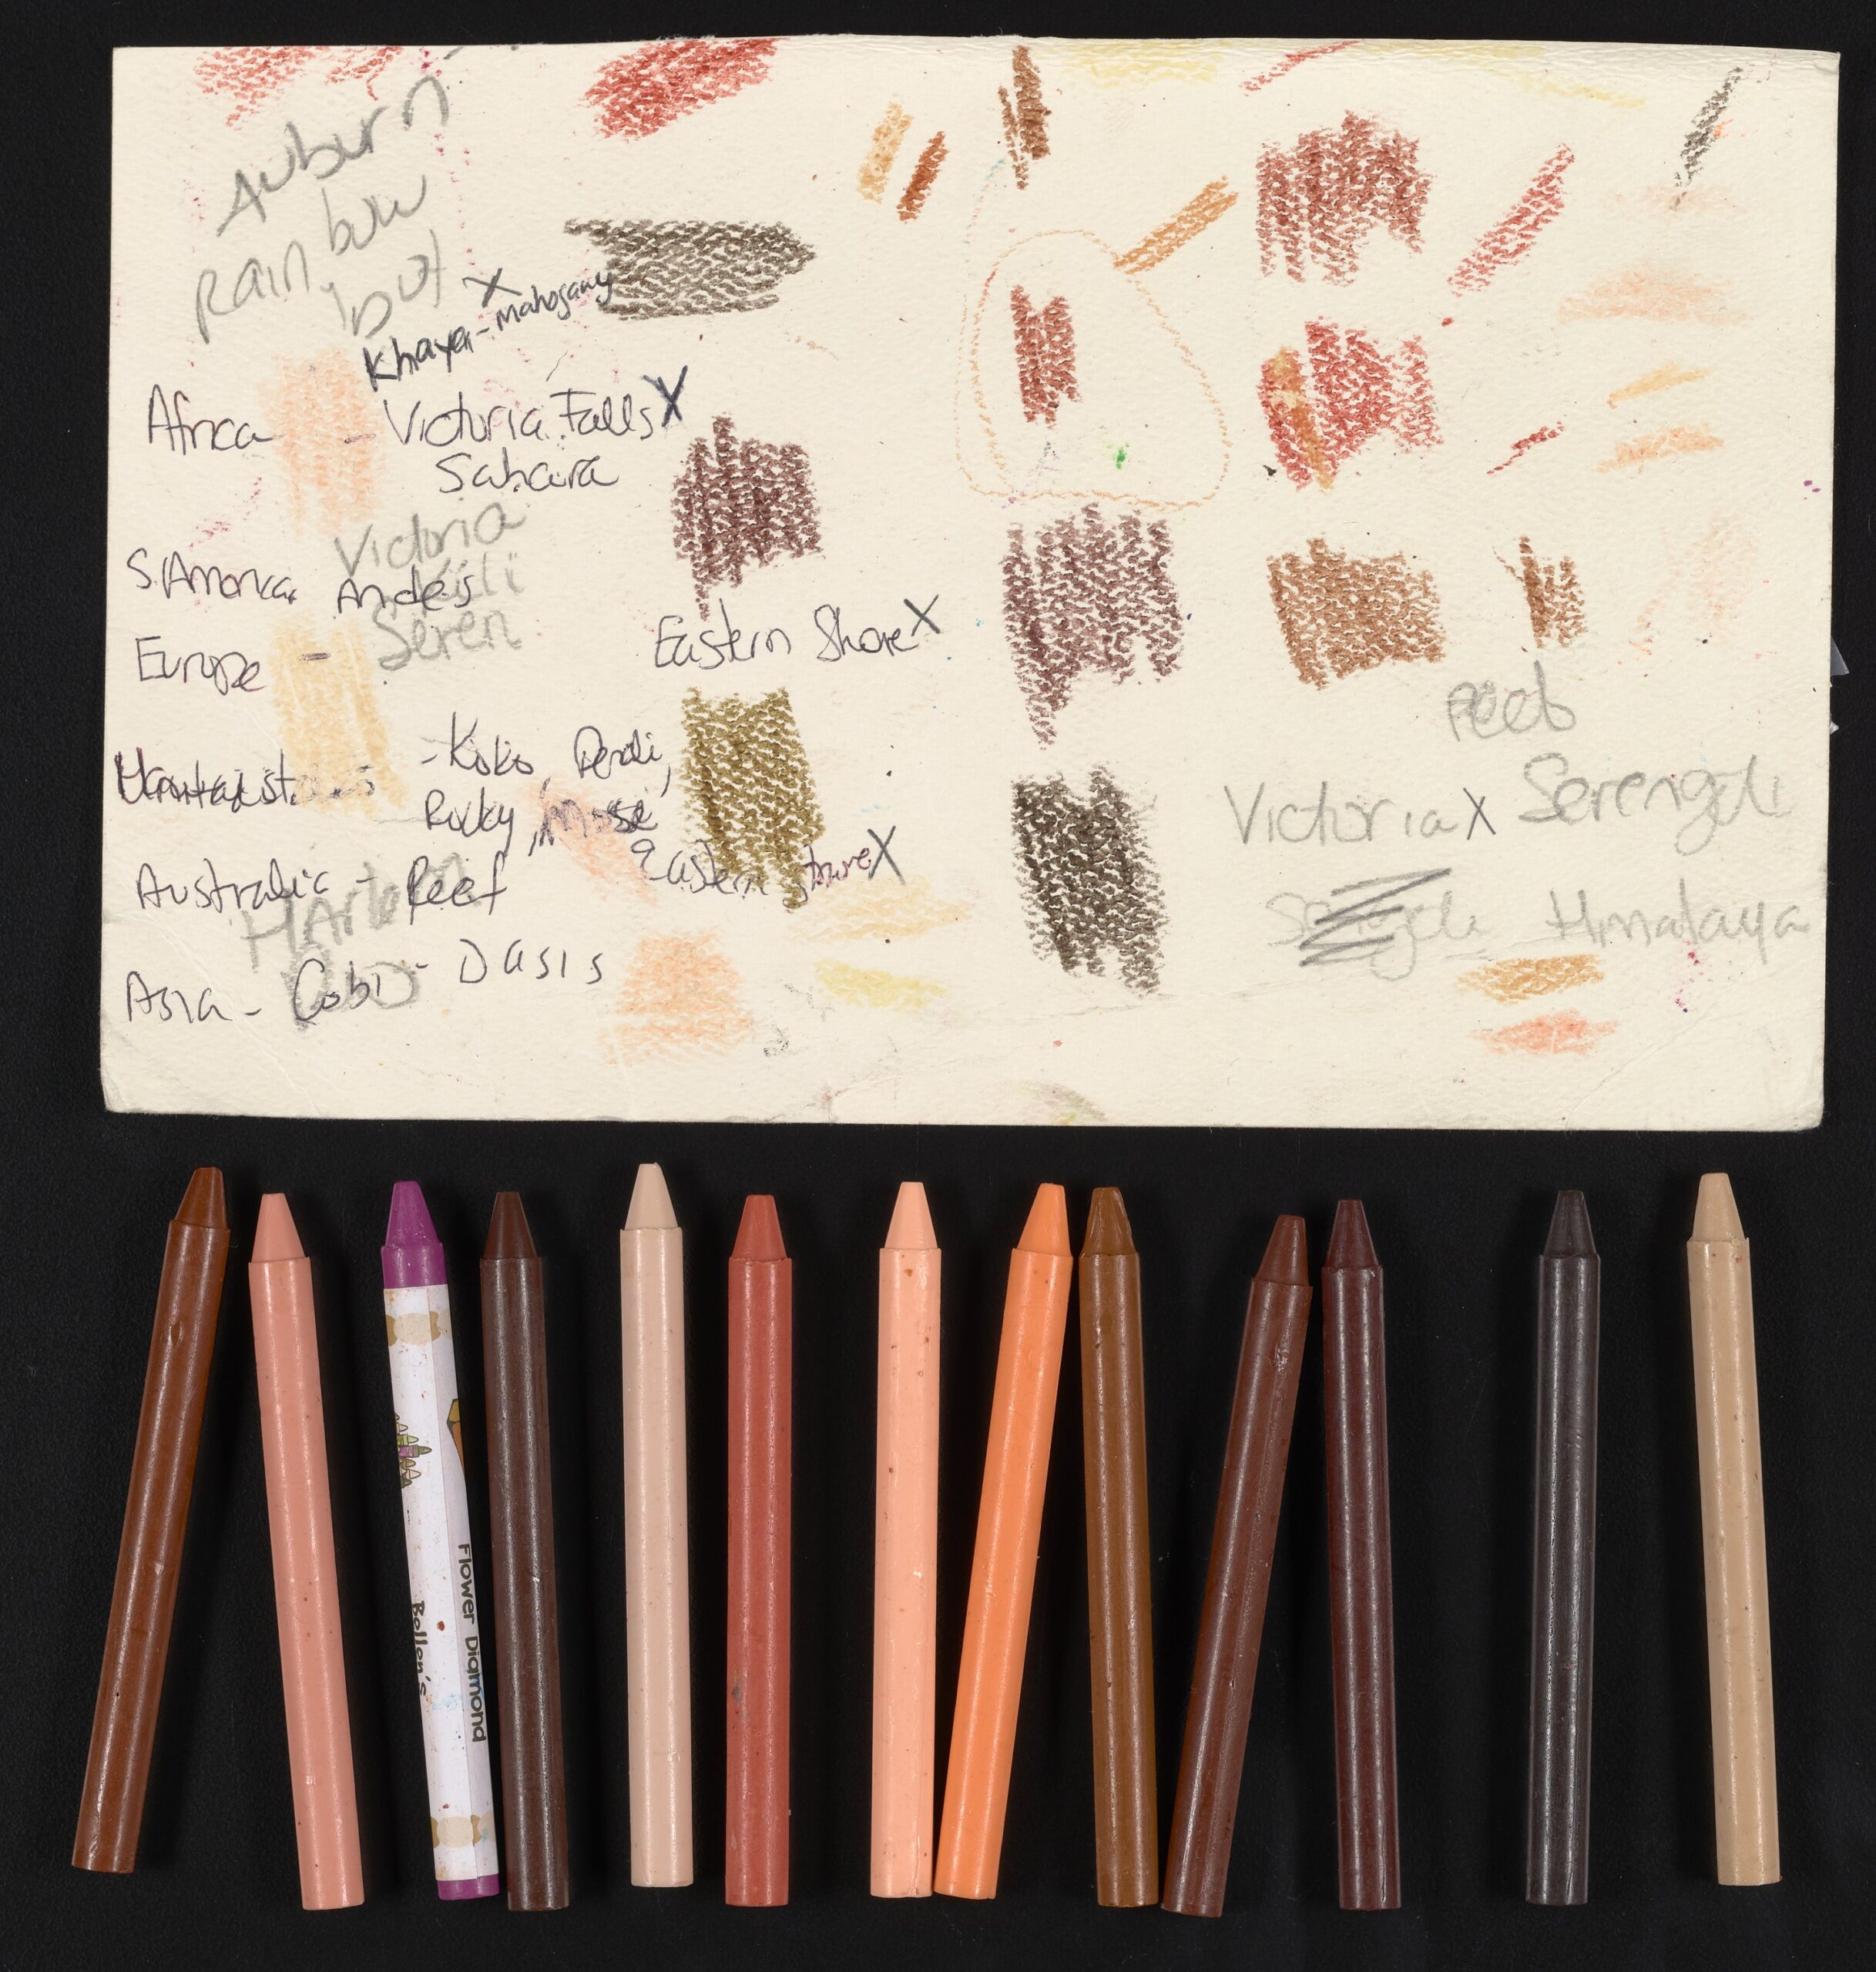 Auburn
Rainbow
but
X
Khaya-Mahogany
Africa - Victoria Falls X
Sahara
Victoria
S. America Andes
Seren
Europe -
Eastern Shore X
- Koko,
Rocky,
Eastern Shore X
Australia - Reef
Harlem
Asia - Gobi - Oasis
Reeb
Victoria X Serengeti
Himalaya
Flower Diamond
Bellen's